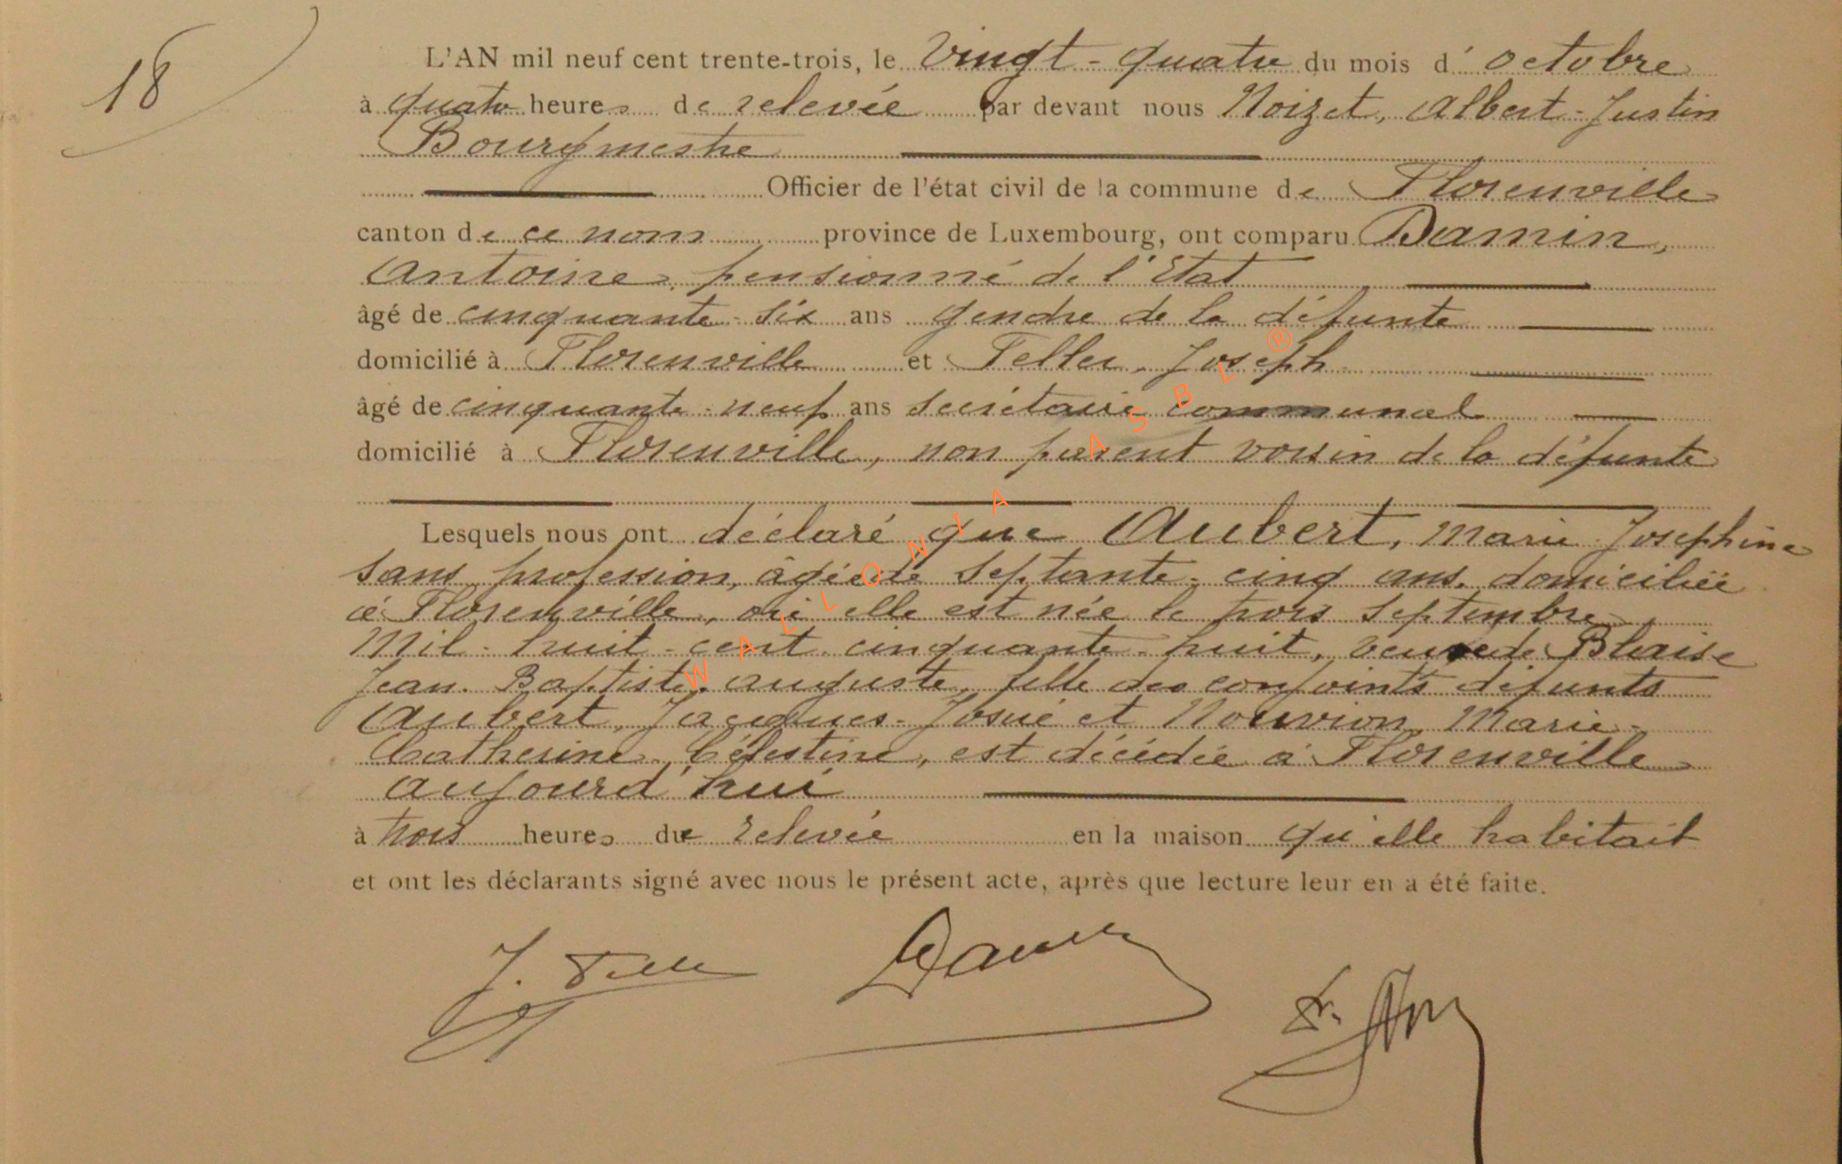 18
L'AN mil neuf cent trente-trois, le Vingt-quatre du mois d'octobre
à quatre heures de relevée par devant nous Noizet, Albert-Justin
Bourgmestre
Officier de l'état civil de la commune de Florenville
canton de ce nom province de Luxembourg, ont comparu Damin,
Antoine, pensionné de l'Etat
âgé de cinquante-six ans gendre de la défunte
domicilié à Florenville et Feller, Joseph
âgé de cinquante-neuf ans secrétaire communal
domicilié à Florenville, non parent voisin de la défunte
Lesquels nous ont déclaré que Aubert, Marie-Josephine
sans profession, âgée de septante-cinq ans, domiciliée
à Florenville, où elle est née le trois septembre
Mil-huit-cent-cinquante-huit, veuve de Blaise
Jean-Baptiste-Auguste, fille des conjoints défunts
Aubert, Jacques-Josué et Nouvion, Marie-
Catherine, Célestine, est décédée à Florenville
aujourd'hui
à trois heures de relevée en la maison qu'elle habitait
et ont les déclarants signé avec nous le présent acte, après que lecture leur en a été faite.
J. Feller Damin
WALLONIA ASBL ®